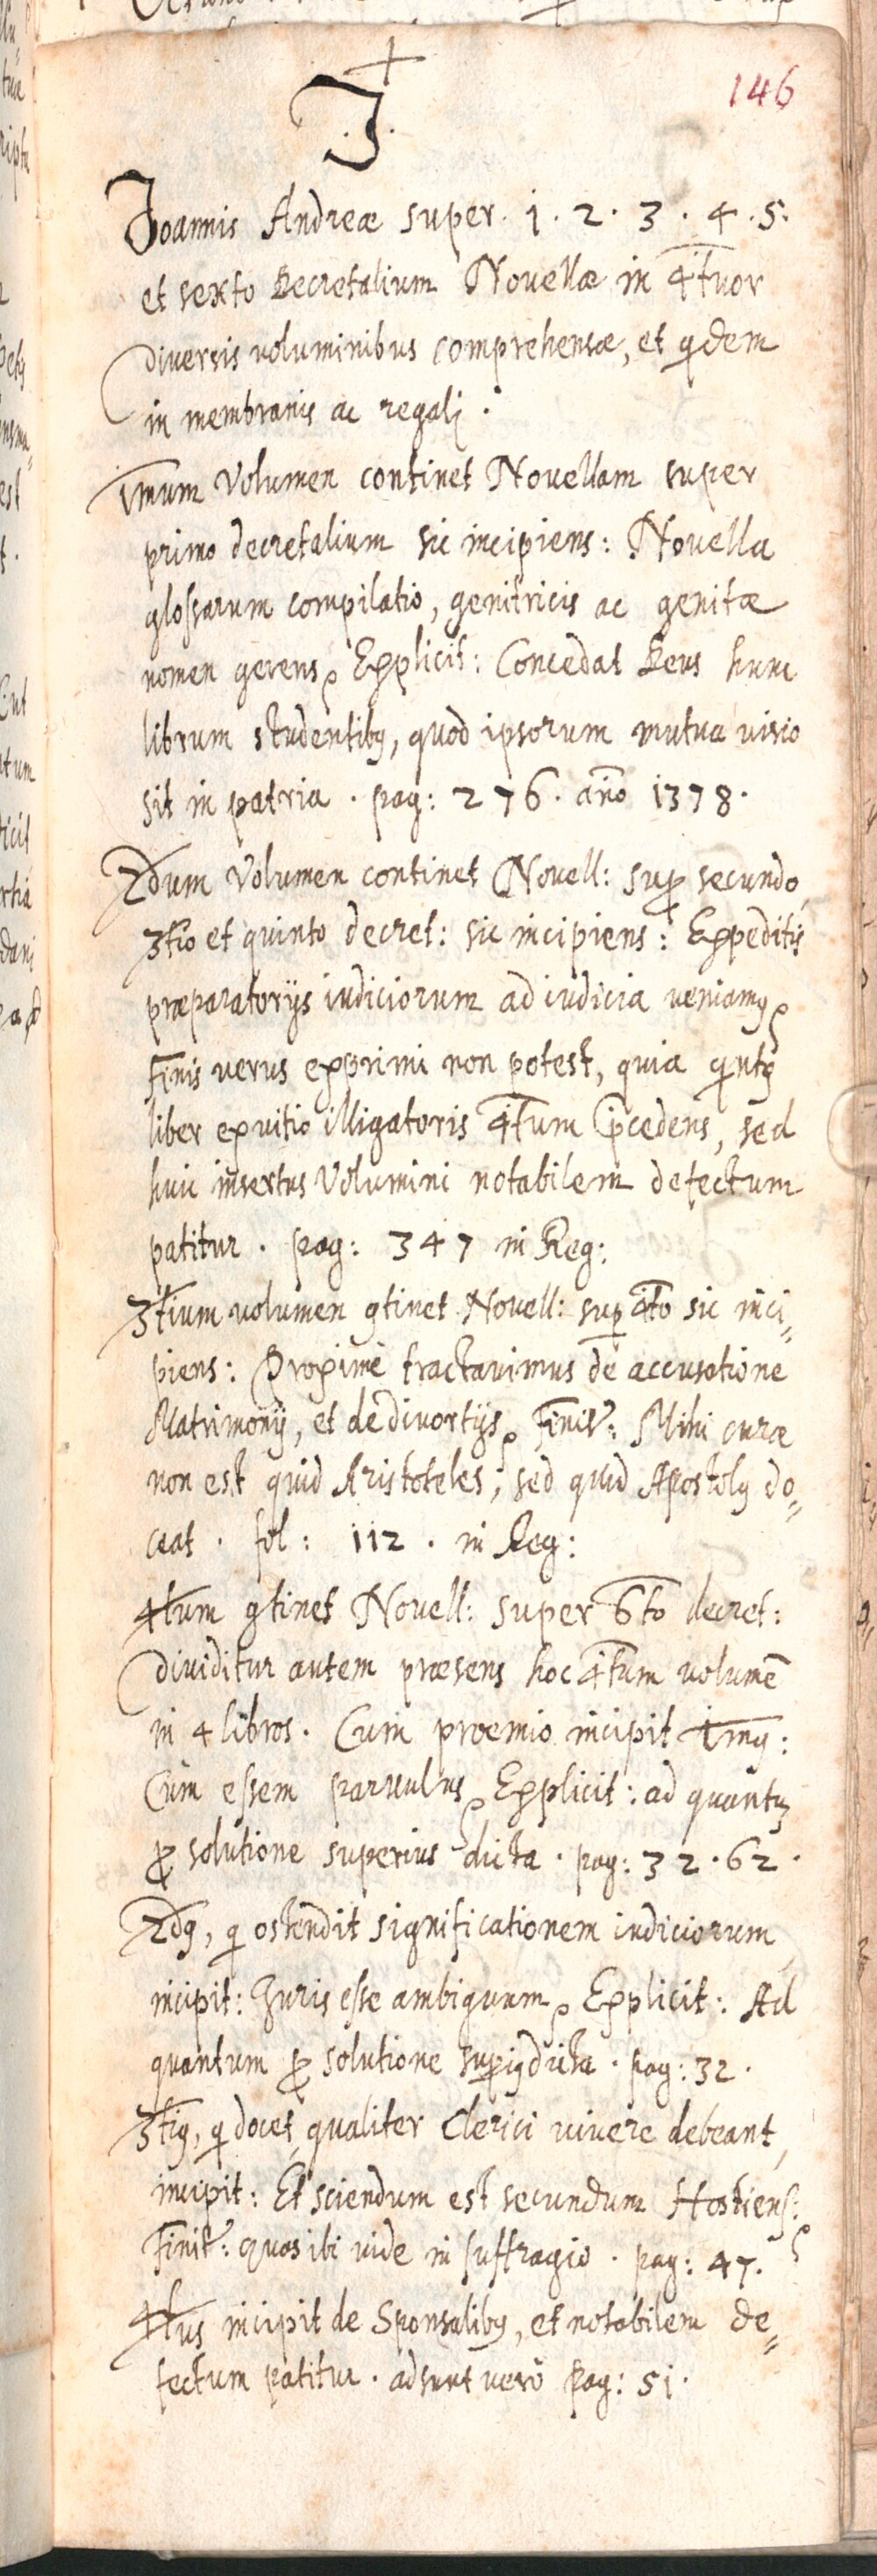 146
J.
Joannis Andreæ super. 1. 2. 3. 4. 5.
et sexto Decretalium Novellæ in 4tuor
diversis voluminibus comprehensæ, et qdem
in membranis ac regali.
1mum Volumen continet Novellam super
primo decretalium sic incipiens: Novella
glossarum compilatio, genitricis ac genitæ
nomen gerens. Explicit: Concedat Deus hunc
librum studentibꝰ, quod ipsorum mutua visio
sit in patria. pag: 276. año 1378.
2dum Volumen continet Novell: sup secundo,
3tio et quinto decret: sic incipiens: Expeditis
præparatorijs iudiciorum ad iudicia veniamꝰ.
Finis verus exprimi non potest, quia qntꝰ
liber ex vitio illigatoris 4tum pcedens, sed
huic insertus Volumini notabilem defectum
patitur. pag: 347 in Reg:
3tium volumen ꝯtinet Novell: sup 4to sic inci„
piens: Proximè tractavimus de accusatione
Matrimonij, et de divortijs. Finit: Mihi curæ
non est quid Aristoteles, sed quid Apostolꝰ do„
ceat. fol: 112. in Reg:
4tum ꝯtinet Novell: super 6to decret:
dividitur autem præsens hoc 4tum volumē
in 4 libros. Cum proemio incipit 1mꝰ:
Cùm essem parvulus. Explicit: ad quantꝫ
ꝓ solutione superius dicta. pag: 32. 62.
2dꝰ, q ostendit significationem iudiciorum,
incipit: Juris esse ambiguum. Explicit: Ad
quantum ꝓ solutione supiꝰ dicta. pag: 32.
3tiꝰ, q docet, qualiter Clerici vivere debeant,
incipit: Et sciendum est secundum Hostiens:
Finit: quos ibi vide in suffragio. pag: 47.
4tus incipit de Sponsalibꝰ, et notabilem de„
fectum patitur. adsunt verò pag: 51.